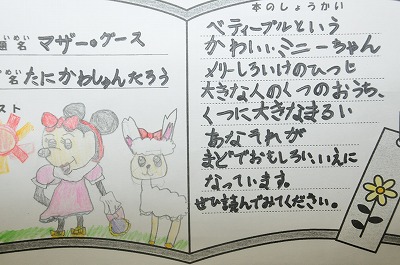 題名 マザー・グース
名 たにかわしゅんたろう
スト
本のしょうかい
ベティープルという
かわいいミニーちゃん
メリーしろいけのひつじ
大きな人のくつのおうち、
くつに大きなまるい
あなそれが
まどでおもしろい、いえに
なっています。
ぜひ読んでみてください。